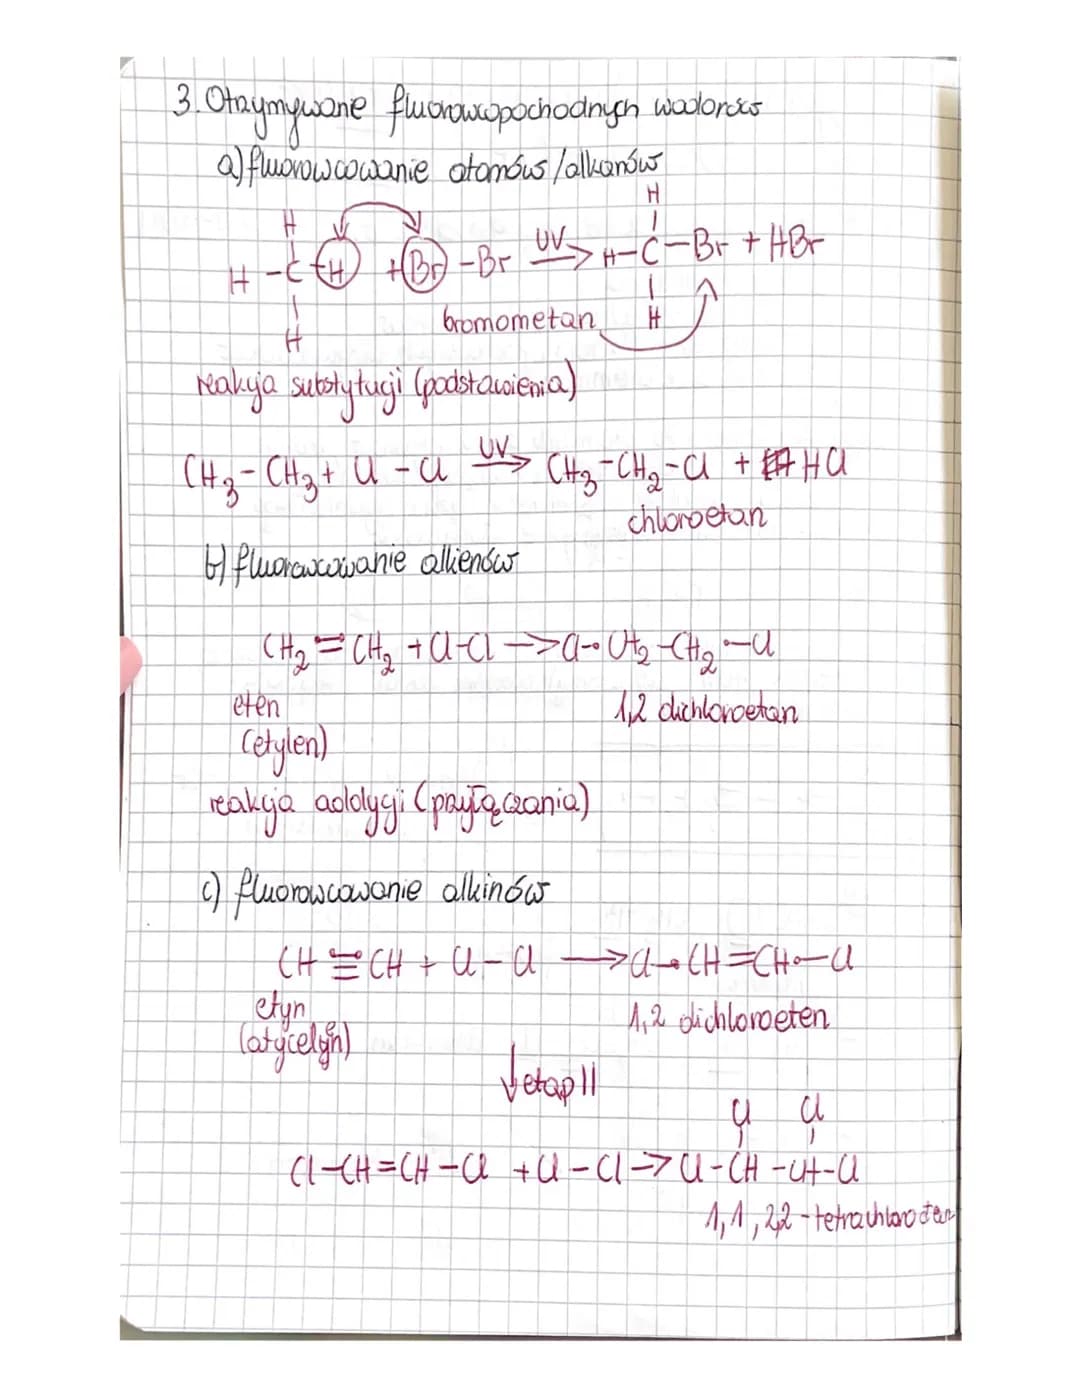 3. Otrzymywane fluorowcopochodnych wodorów
a) fluorowcowanie atomów/alkanów
H H
H-C-H + Br-Br UV→ H-C-Br + HBr
H bromometan H
reakcja substytucji (podstawienia)
CH3-CH3 + Cl-Cl UV→ CH3-CH2-Cl + HCl
chloroetan
b) fluorowcowanie alkenów
CH2=CH2 + Cl-Cl → Cl-CH2-CH2-Cl
eten 1,2 dichloroetan
(etylen)
reakcja addycji (przyłączania)
c) fluorowcowanie alkinów
CH≡CH + Cl-Cl → Cl-CH=CH-Cl
etyn 1,2 dichloroeten
↓ etap II
Cl Cl
Cl-CH=CH-Cl + Cl-Cl → Cl-CH-CH-Cl
1,1,2,2-tetrachloroetan